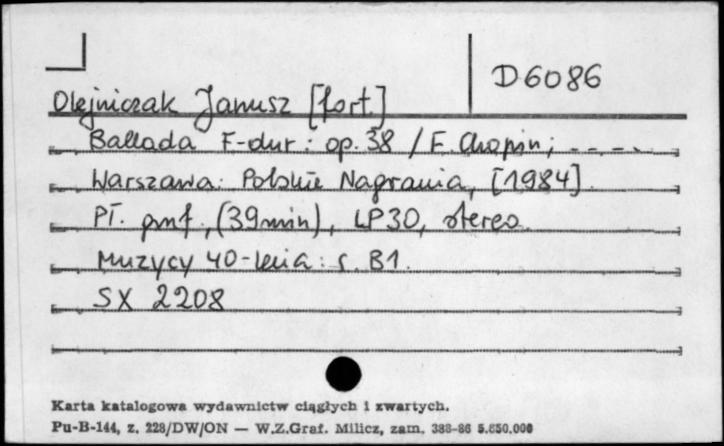 D6086
Olejniczak Janusz [fort.]
Ballada F-dur : op. 38 / F. Chopin ; - - -.
Warszawa : Polskie Nagrania, [1984].
Pł. gmf., (39 min), LP30, stereo.
Muzycy 40-lecia : s. B1.
SX 2208
Karta katalogowa wydawnictw ciągłych i zwartych.
Pu-B-144, z. 228/DW/ON — W.Z.Graf. Milicz, zam. 388-86 5.650.000